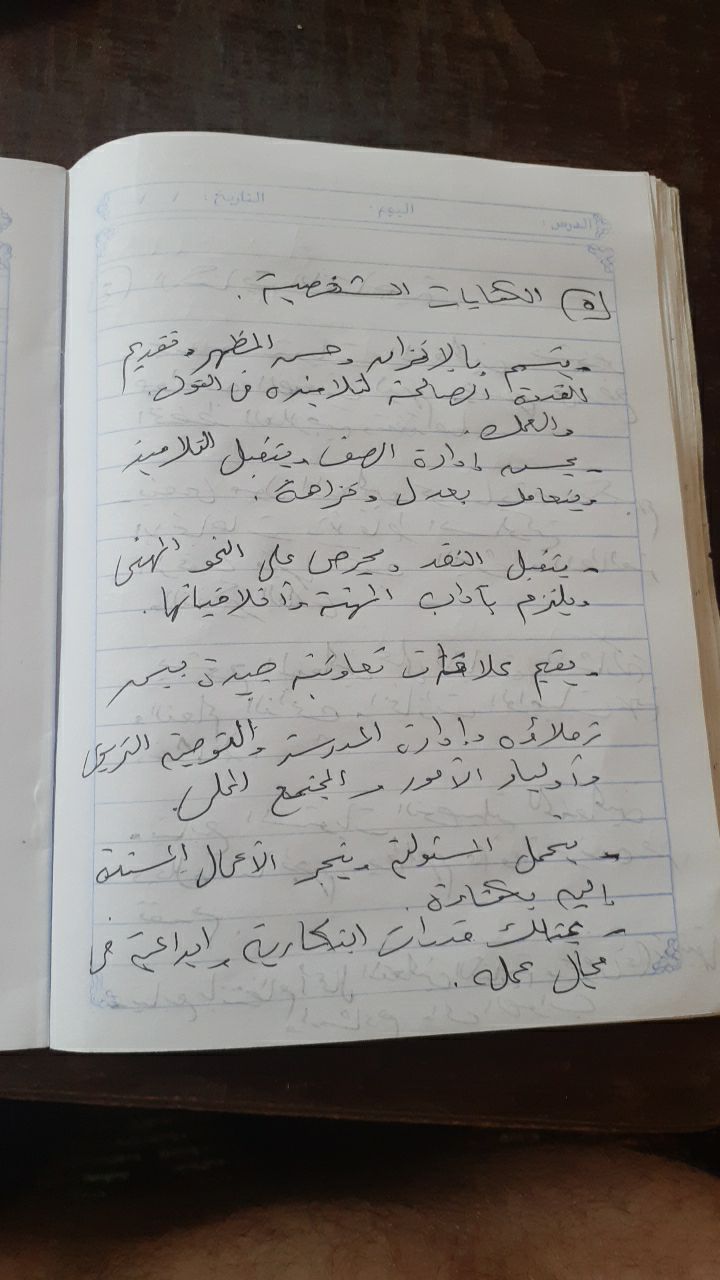 الدرس: اليوم: التاريخ: / /
(٥) الكفايات الشخصية.
- يتسم بالإتزان وحسن المظهر وتقديم
القدوة الصالحة لتلاميذه في القول.
والعمل.
- يحسن إدارة الصف ويتقبل التلاميذ
ويتعامل بعدل ونزاهة.
- يتقبل النقد ويحرص على النمو المهني
ويلتزم بآداب المهنة وأخلاقياتها.
- يقيم علاقات تعاونية جيدة بين
زملاؤه وإدارة المدرسة والتوجيه التربوي
وأولياء الأمور والمجتمع المحلي.
- يتحمل المسئولية وينجز الأعمال المسندة
إليه بكفاءة.
- يمتلك قدرات ابتكارية وابداعية في
مجال عمله.